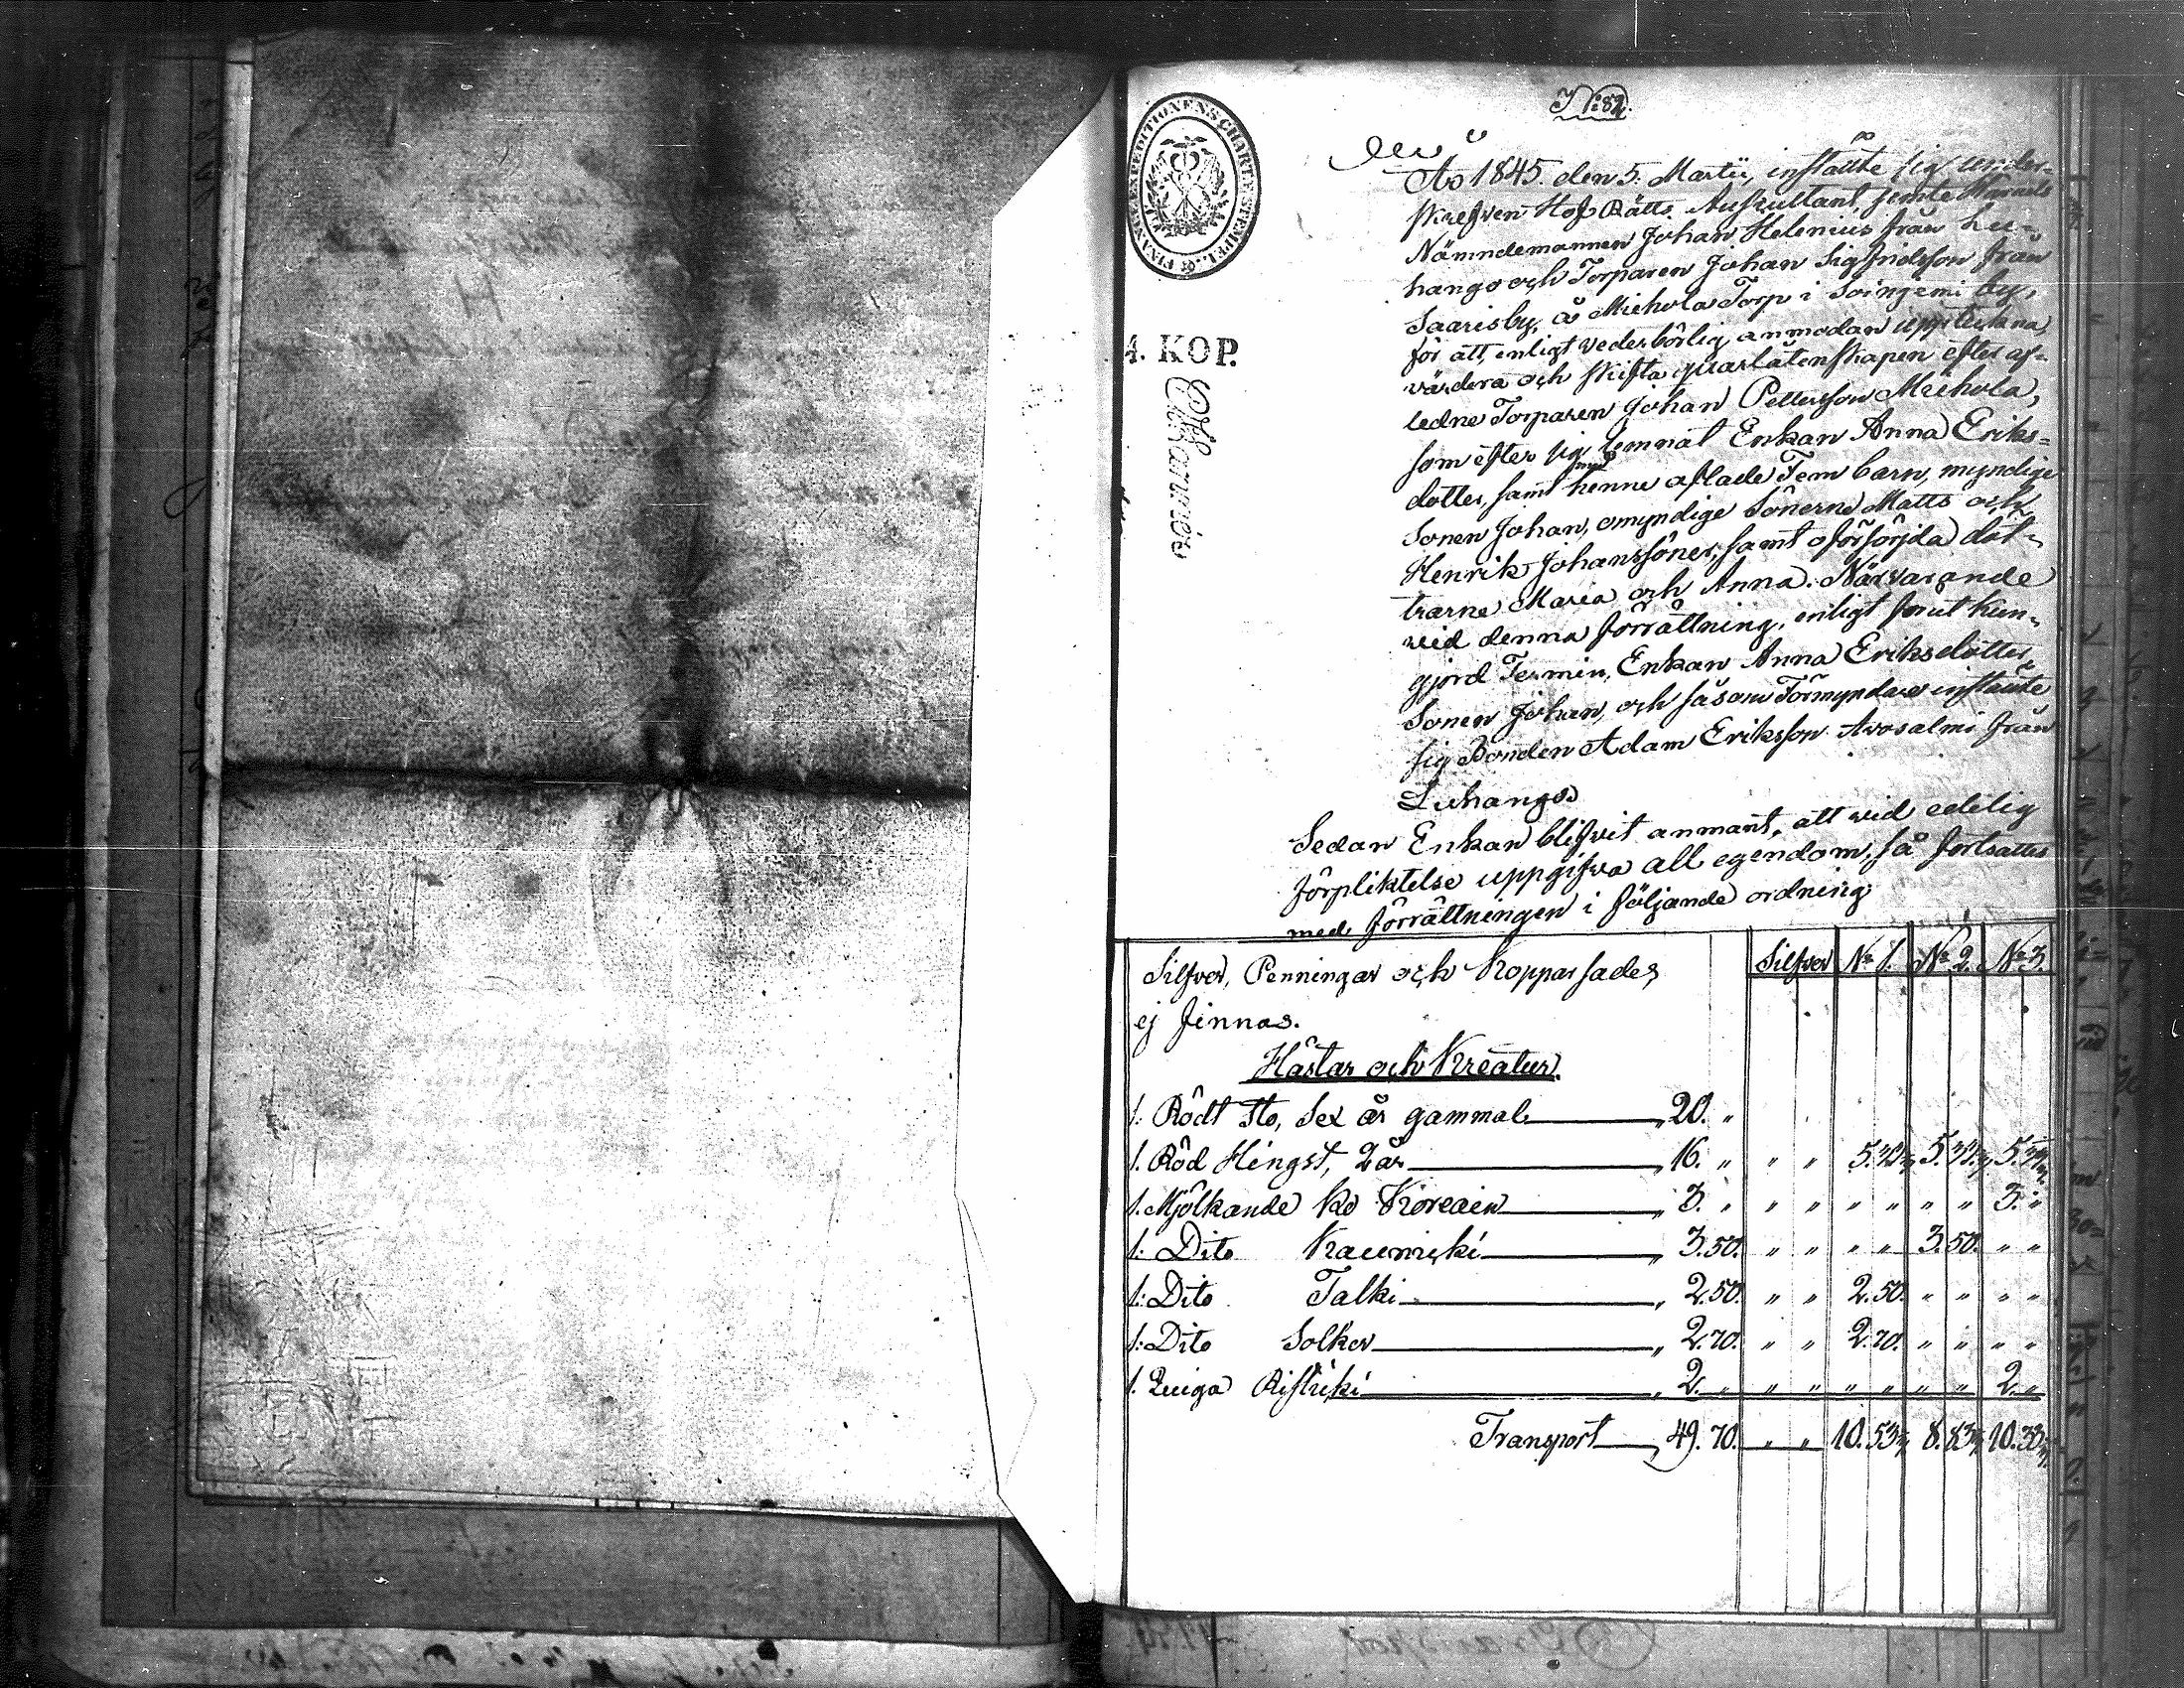 N:82.
FINANCE EXPEDITIONENS CHARTÆ STEMPEL.
4. KOP.
Åo 1845. den 5. Martii, instälte sig under-
skrefven Hof Rätts Auskultant, jemte Härads
Nämndemannen Johan Helenius från Lu-
hango och Torparen Johan Sigfridsson från
Saarisby, å Miehola Torp i Soinjemi by,
för att, enligt vederbörlig anmodan uppteckna,
värdera och skifta qvarlåtenskapen efter af-
ledne Torparen Johan Pettersson Miehola,
som efter sig lemnat Enkan Anna Eriks=
dotter, samt med henne aflade Fem barn, myndige
Sonen Johan, omyndige Sönerne Matts och
Henrik Johanssöner, samt oförsörjda döt-
trarne Maria och Anna. Närvarande
vid denna förrättning, enligt förut kun-
gjord Termin, Enkan Anna Eriksdotter,
Sonen Johan, och såsom Förmyndare instälte
sig Bonden Adam Eriksson Avosalmi från
Luhango
Sedan Enkan blifvit anmant, att vid edelig
förpliktelse uppgifva all egendom, så fortsattes
med förrättningen i följande ordning
Silfver, Penningar och Kopparsaker, Silfver No 1. No 2. No 3.
ej finnas.
Hästar och Kreatur.
1. Rödt Sto, Sex år gammal 20. "
1. Röd Hingst, 2 år 16. " " " 5.33 1/3 5.33 1/3 5.33 1/3
1. Mjölkande Ko Koreain 3. " " " " " " " 3. "
1. Dito Kauniki 3.50. " " " " 3.50. " "
1. Dito Talki 2.50. " " 2.50. " " " "
1. Dito Solker 2.70. " " 2.70. " " " "
1. Quiga Ristiki 2. " " " " " " " 2. "
Transport 49.70. " " 10.53 1/3 8.83 1/3 10.33 1/3